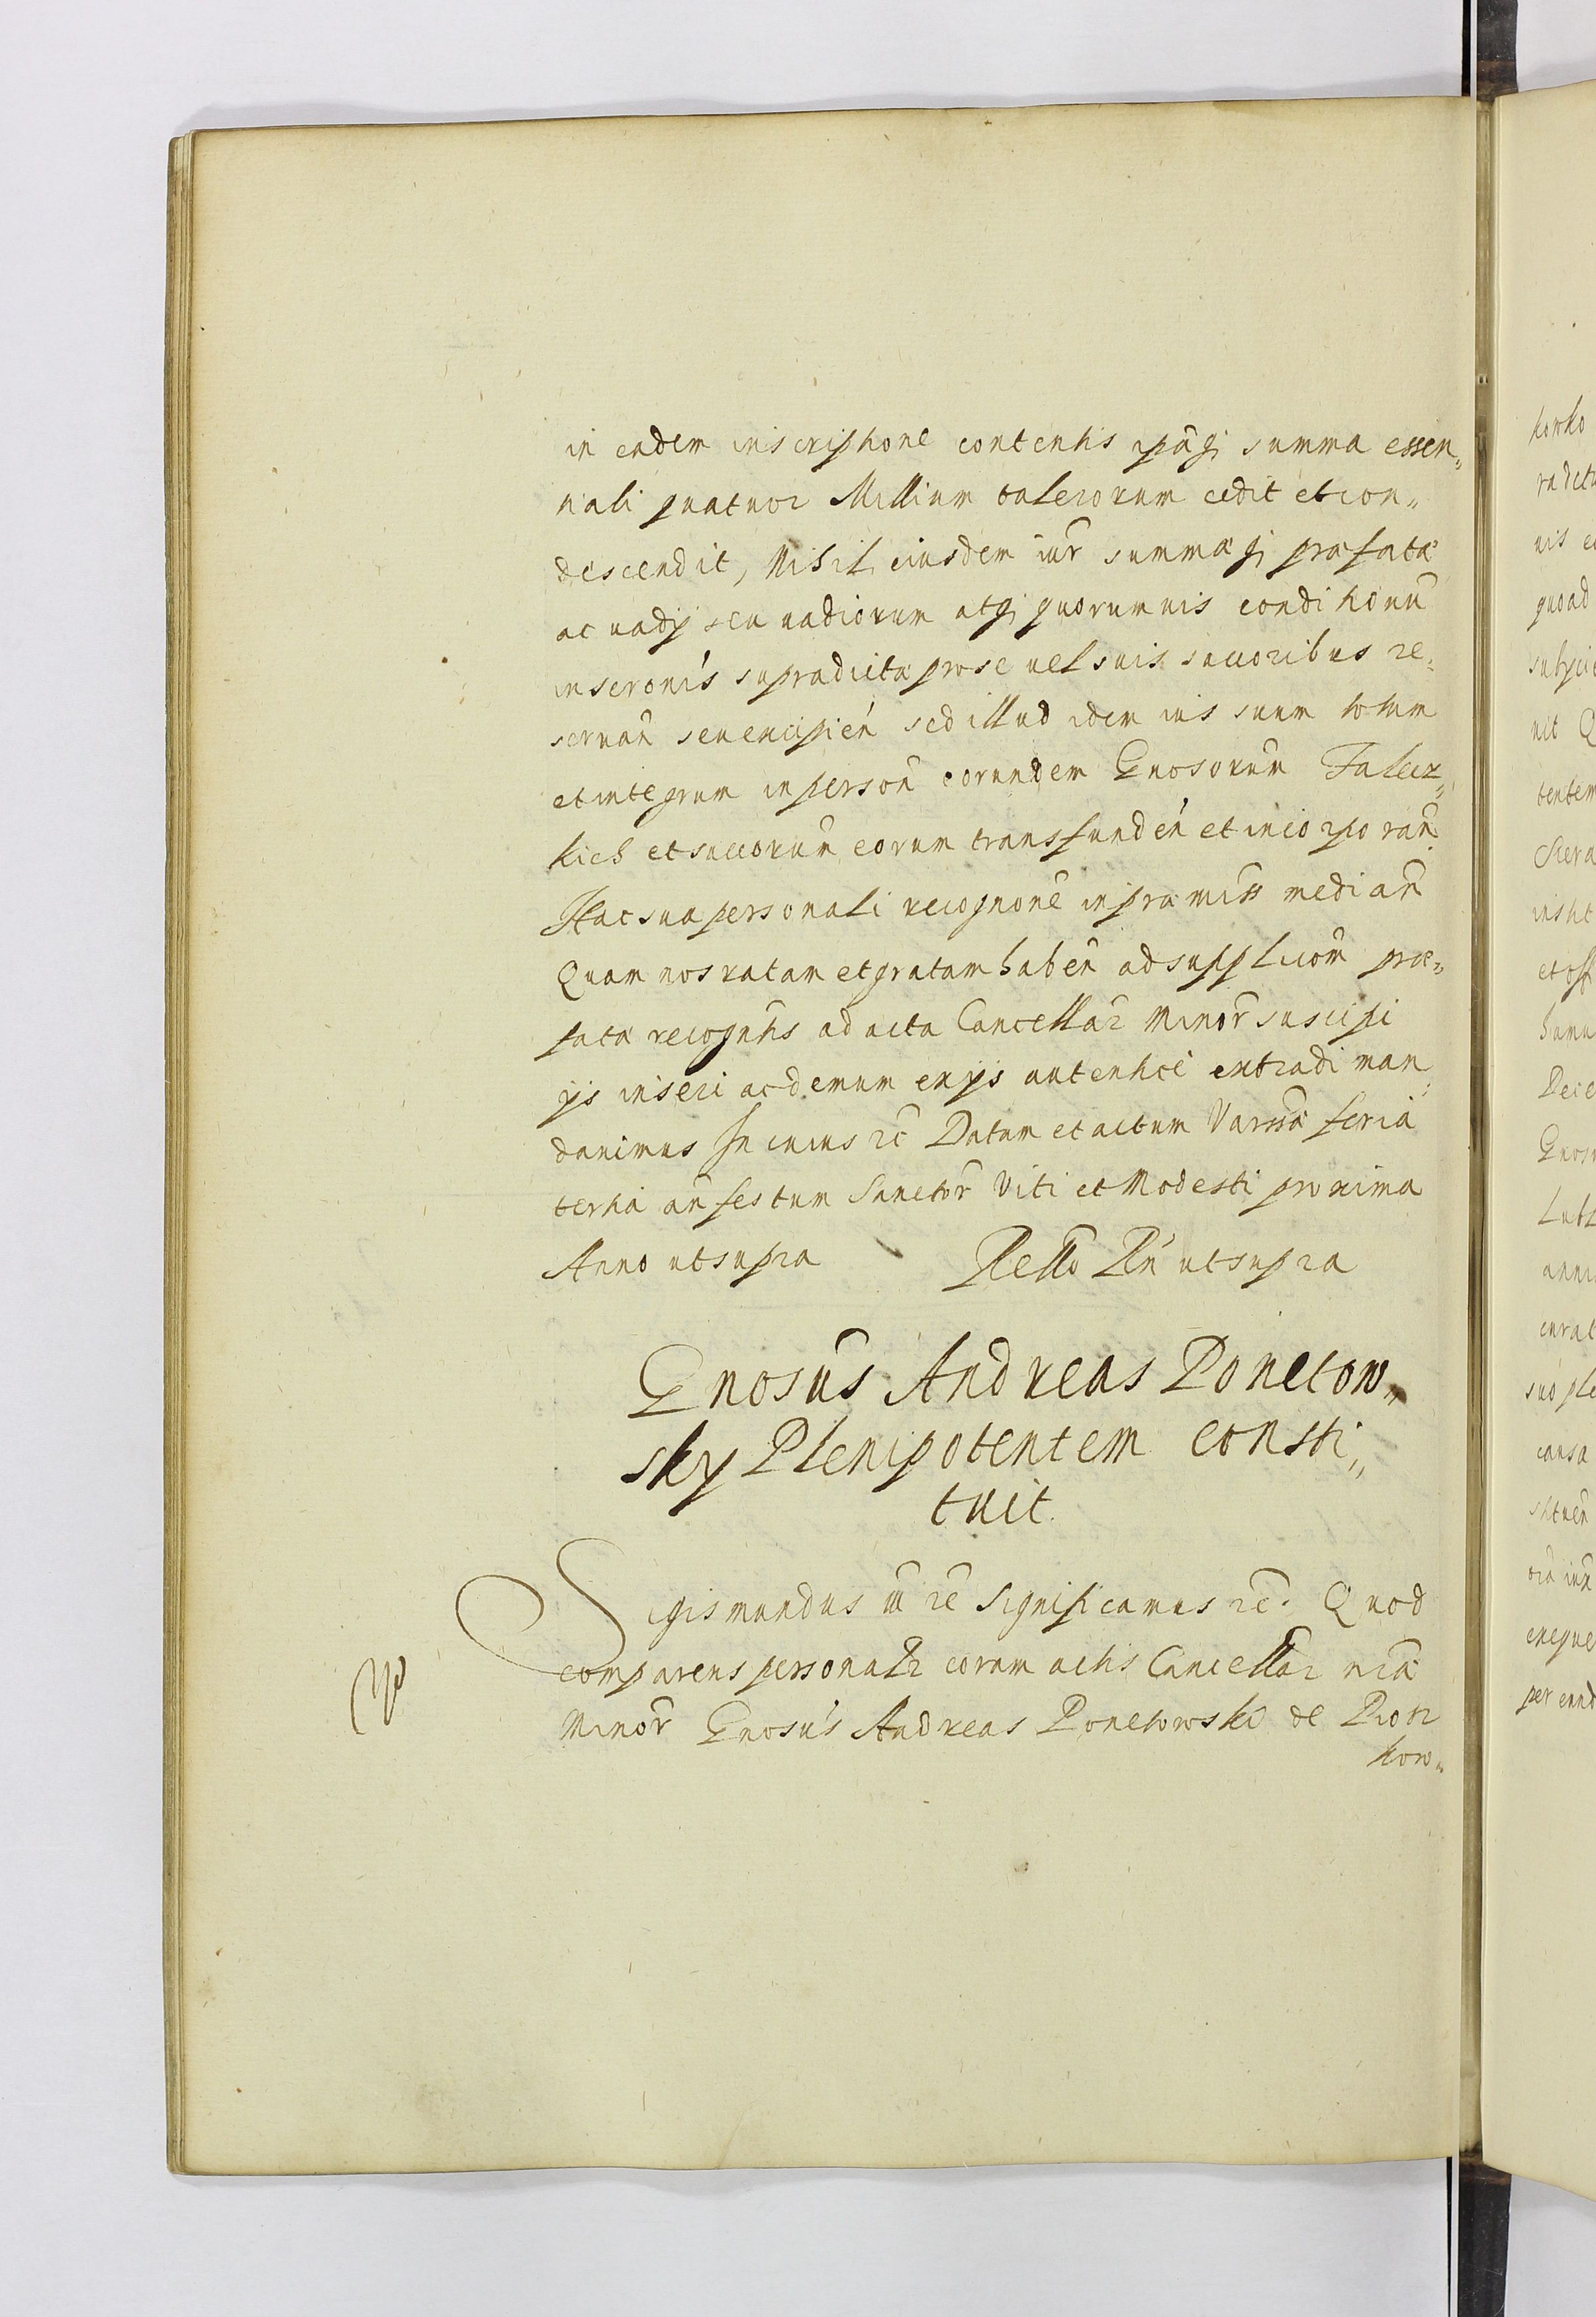 in eadem inscriptione contentis ipaq; summa essen„
tiali quatuor Millium talerorum cedit et con„
descendit, Nihil eiusdem iur̃ summaq; præfatæ
ac uadÿ seu uadiorum atq; quorumuis conditionũ
inseronis supradictæ pro se uel suis succoribus re„
seruań seu excipień sed illud idem ius suum totum
et integrum in person̄ eorundem Gnosorum Falecz„
kich et succorum eorum transfundeń et incorporań.
Hac sua personali recognone in præmiss medianñ
Quam nos ratam et gratam habeñ ad supplicom̃ præ„
fatæ recogntis ad acta Cancellar Minor̃ suscipi
ÿs inseri ac demum ex ÿs autenticè extradi man„
dauimus In cuius rc̃ Datum et actum Varssæ feria
tertia añ festum Sanctor̃ Viti et Modesti proxima
Anno ut supra Rello Rń ut supra
Gnosus Andreas Ponetow„
sky Plenipotentem consti„
tuit.
Sigismundus iii rc̃ Significamus rc̃. Quod
comparens personalr coram actis Cancellar nr̃æ
Minor̃ Gnosus Andreas Ponetowski de Piotr
kow„
korko
quad
uit Q
tentem
Siera
et off
Dece
Gnos
Lubl
curat
suo ple
causa
per eund